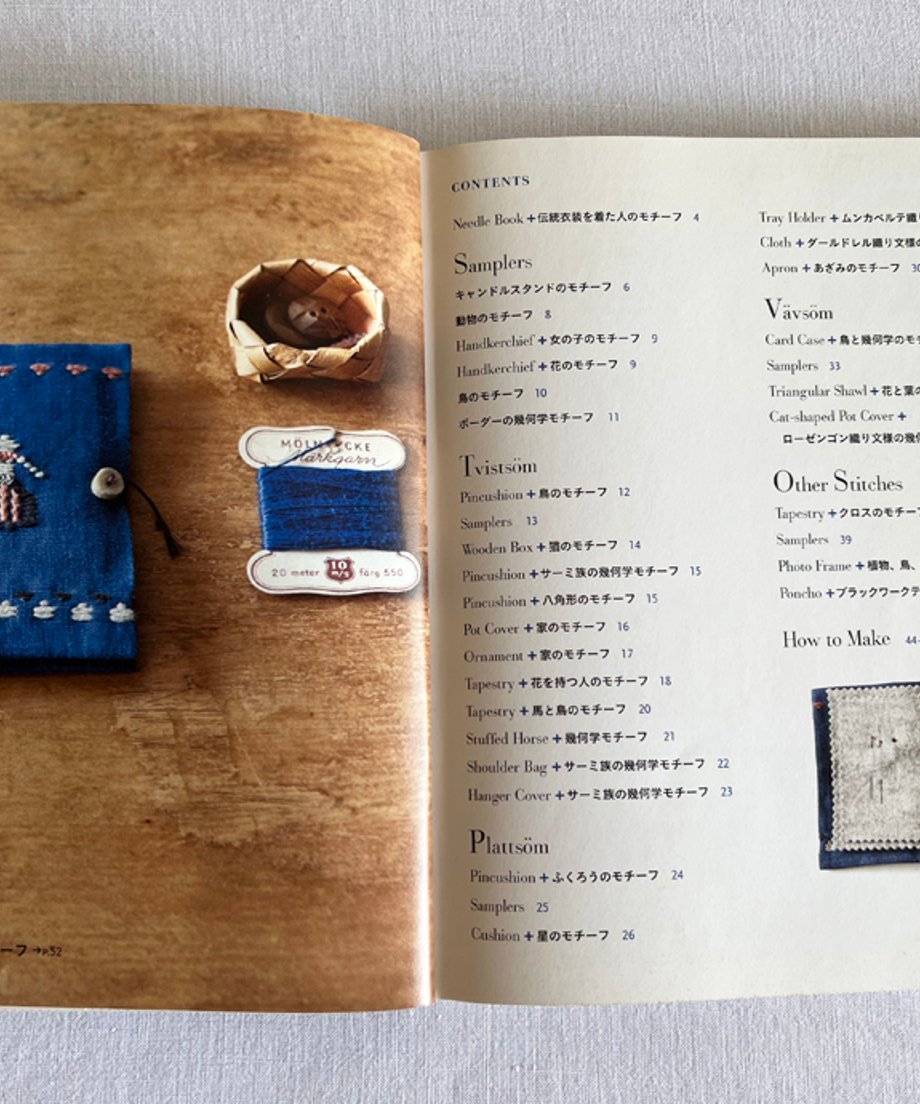 MÖLNLYCKE
Märkgarn
20 meter 10 m/g färg 550
ーフ →p.52
CONTENTS
Needle Book + 伝統衣装を着た人のモチーフ 4
Samplers
キャンドルスタンドのモチーフ 6
動物のモチーフ 8
Handkerchief + 女の子のモチーフ 9
Handkerchief + 花のモチーフ 9
鳥のモチーフ 10
ボーダーの幾何学モチーフ 11
Tvistsöm
Pincushion + 鳥のモチーフ 12
Samplers 13
Wooden Box + 猫のモチーフ 14
Pincushion + サーミ族の幾何学モチーフ 15
Pincushion + 八角形のモチーフ 15
Pot Cover + 家のモチーフ 16
Ornament + 家のモチーフ 17
Tapestry + 花を持つ人のモチーフ 18
Tapestry + 馬と鳥のモチーフ 20
Stuffed Horse + 幾何学モチーフ 21
Shoulder Bag + サーミ族の幾何学モチーフ 22
Hanger Cover + サーミ族の幾何学モチーフ 23
Plattsöm
Pincushion + ふくろうのモチーフ 24
Samplers 25
Cushion + 星のモチーフ 26
Tray Holder + ムンカベルテ織
Cloth + ダールドレル織り文様の
Apron + あざみのモチーフ 30
Vävsöm
Card Case + 鳥と幾何学のモチ
Samplers 33
Triangular Shawl + 花と葉の
Cat-shaped Pot Cover +
ローゼンゴン織り文様の幾何
Other Stitches
Tapestry + クロスのモチーフ
Samplers 39
Photo Frame + 植物、鳥、
Poncho + ブラックワークテ
How to Make 44-